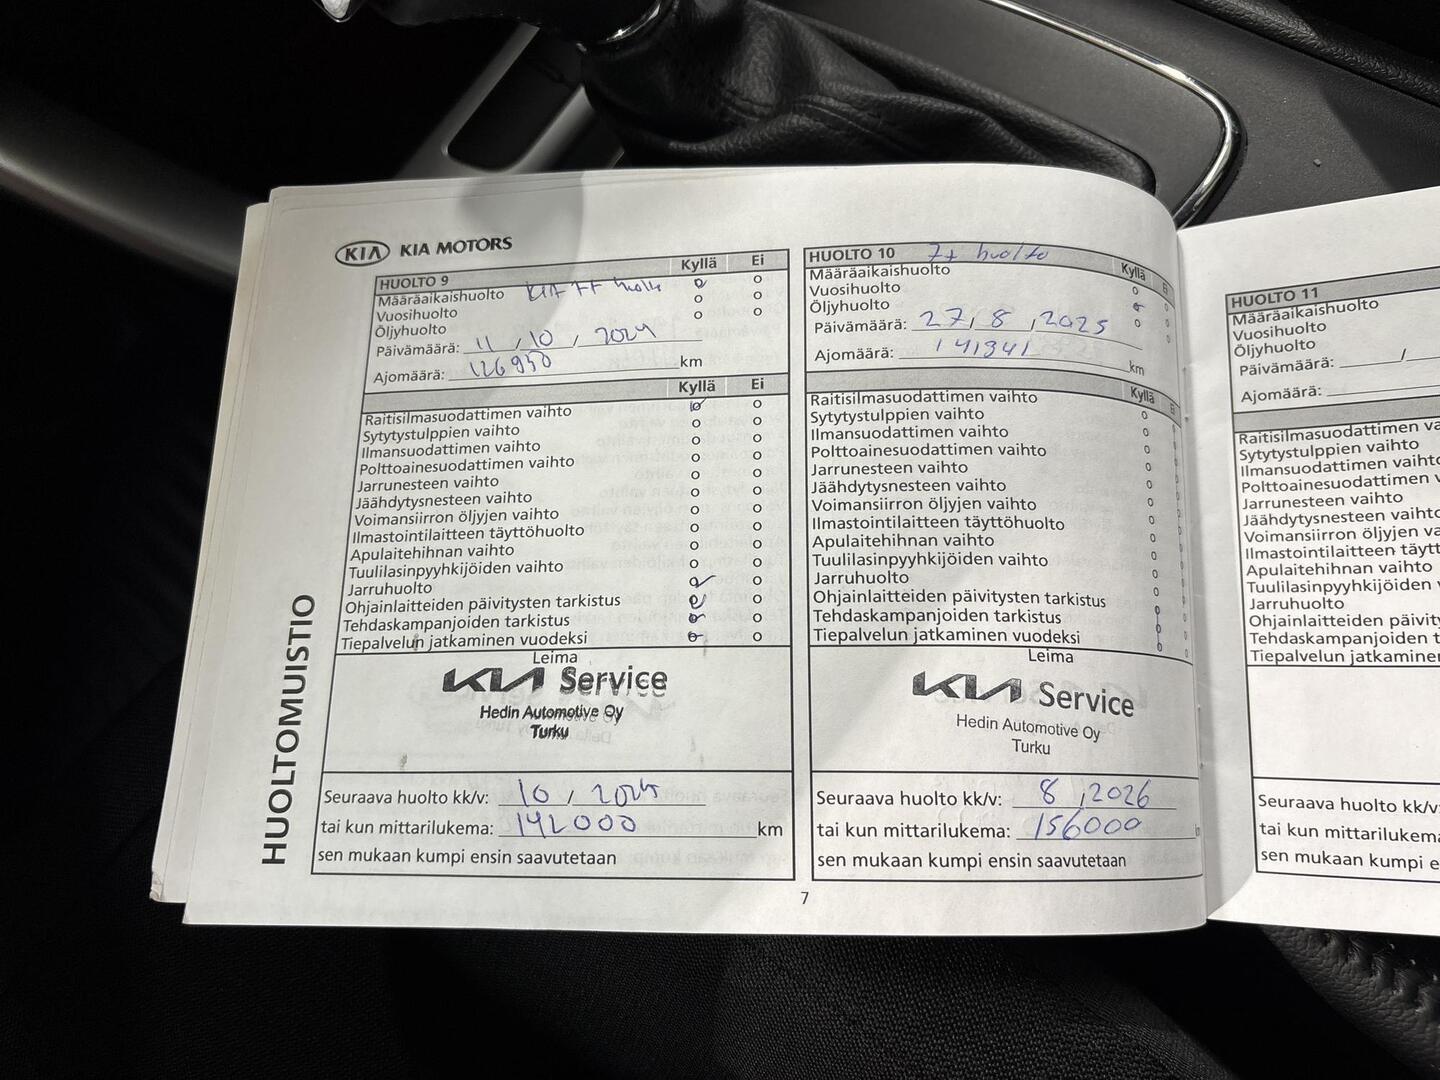 KIA KIA MOTORS
HUOLTOMUISTIO
HUOLTO 9 Kyllä Ei
Määräaikaishuolto KIA 7+ huolto o
Vuosihuolto o o
Öljyhuolto o o
Päivämäärä: 11 / 10 / 2024
Ajomäärä: 126950 km
Kyllä Ei
Raitisilmasuodattimen vaihto o o
Sytytystulppien vaihto o o
Ilmansuodattimen vaihto o o
Polttoainesuodattimen vaihto o o
Jarrunesteen vaihto o o
Jäähdytysnesteen vaihto o o
Voimansiirron öljyjen vaihto o o
Ilmastointilaitteen täyttöhuolto o o
Apulaitehihnan vaihto o o
Tuulilasinpyyhkijöiden vaihto o o
Jarruhuolto o o
Ohjainlaitteiden päivitysten tarkistus o o
Tehdaskampanjoiden tarkistus o o
Tiepalvelun jatkaminen vuodeksi o o
Leima
KIA Service
Hedin Automotive Oy
Turku
Seuraava huolto kk/v: 10 / 2025
tai kun mittarilukema: 142000 km
sen mukaan kumpi ensin saavutetaan
HUOLTO 10 7+ huolto Kyllä Ei
Määräaikaishuolto o o
Vuosihuolto o o
Öljyhuolto o o
Päivämäärä: 27 / 8 , 2025
Ajomäärä: 141341 km
Kyllä Ei
Raitisilmasuodattimen vaihto
Sytytystulppien vaihto
Ilmansuodattimen vaihto
Polttoainesuodattimen vaihto
Jarrunesteen vaihto
Jäähdytysnesteen vaihto
Voimansiirron öljyjen vaihto
Ilmastointilaitteen täyttöhuolto
Apulaitehihnan vaihto
Tuulilasinpyyhkijöiden vaihto
Jarruhuolto
Ohjainlaitteiden päivitysten tarkistus
Tehdaskampanjoiden tarkistus
Tiepalvelun jatkaminen vuodeksi
Leima
KIA Service
Hedin Automotive Oy
Turku
Seuraava huolto kk/v: 8 , 2026
tai kun mittarilukema: 156000
sen mukaan kumpi ensin saavutetaan
7
HUOLTO 11
Määräaikaishuolto
Vuosihuolto
Öljyhuolto
Päivämäärä: /
Ajomäärä:
Raitisilmasuodattimen va
Sytytystulppien vaihto
Ilmansuodattimen vaihto
Polttoainesuodattimen vaihto
Jarrunesteen vaihto
Jäähdytysnesteen vaihto
Voimansiirron öljyjen va
Ilmastointilaitteen täytt
Apulaitehihnan vaihto
Tuulilasinpyyhkijöiden v
Jarruhuolto
Ohjainlaitteiden päivity
Tehdaskampanjoiden t
Tiepalvelun jatkaminer
Seuraava huolto kk/v:
tai kun mittarilukema
sen mukaan kumpi e